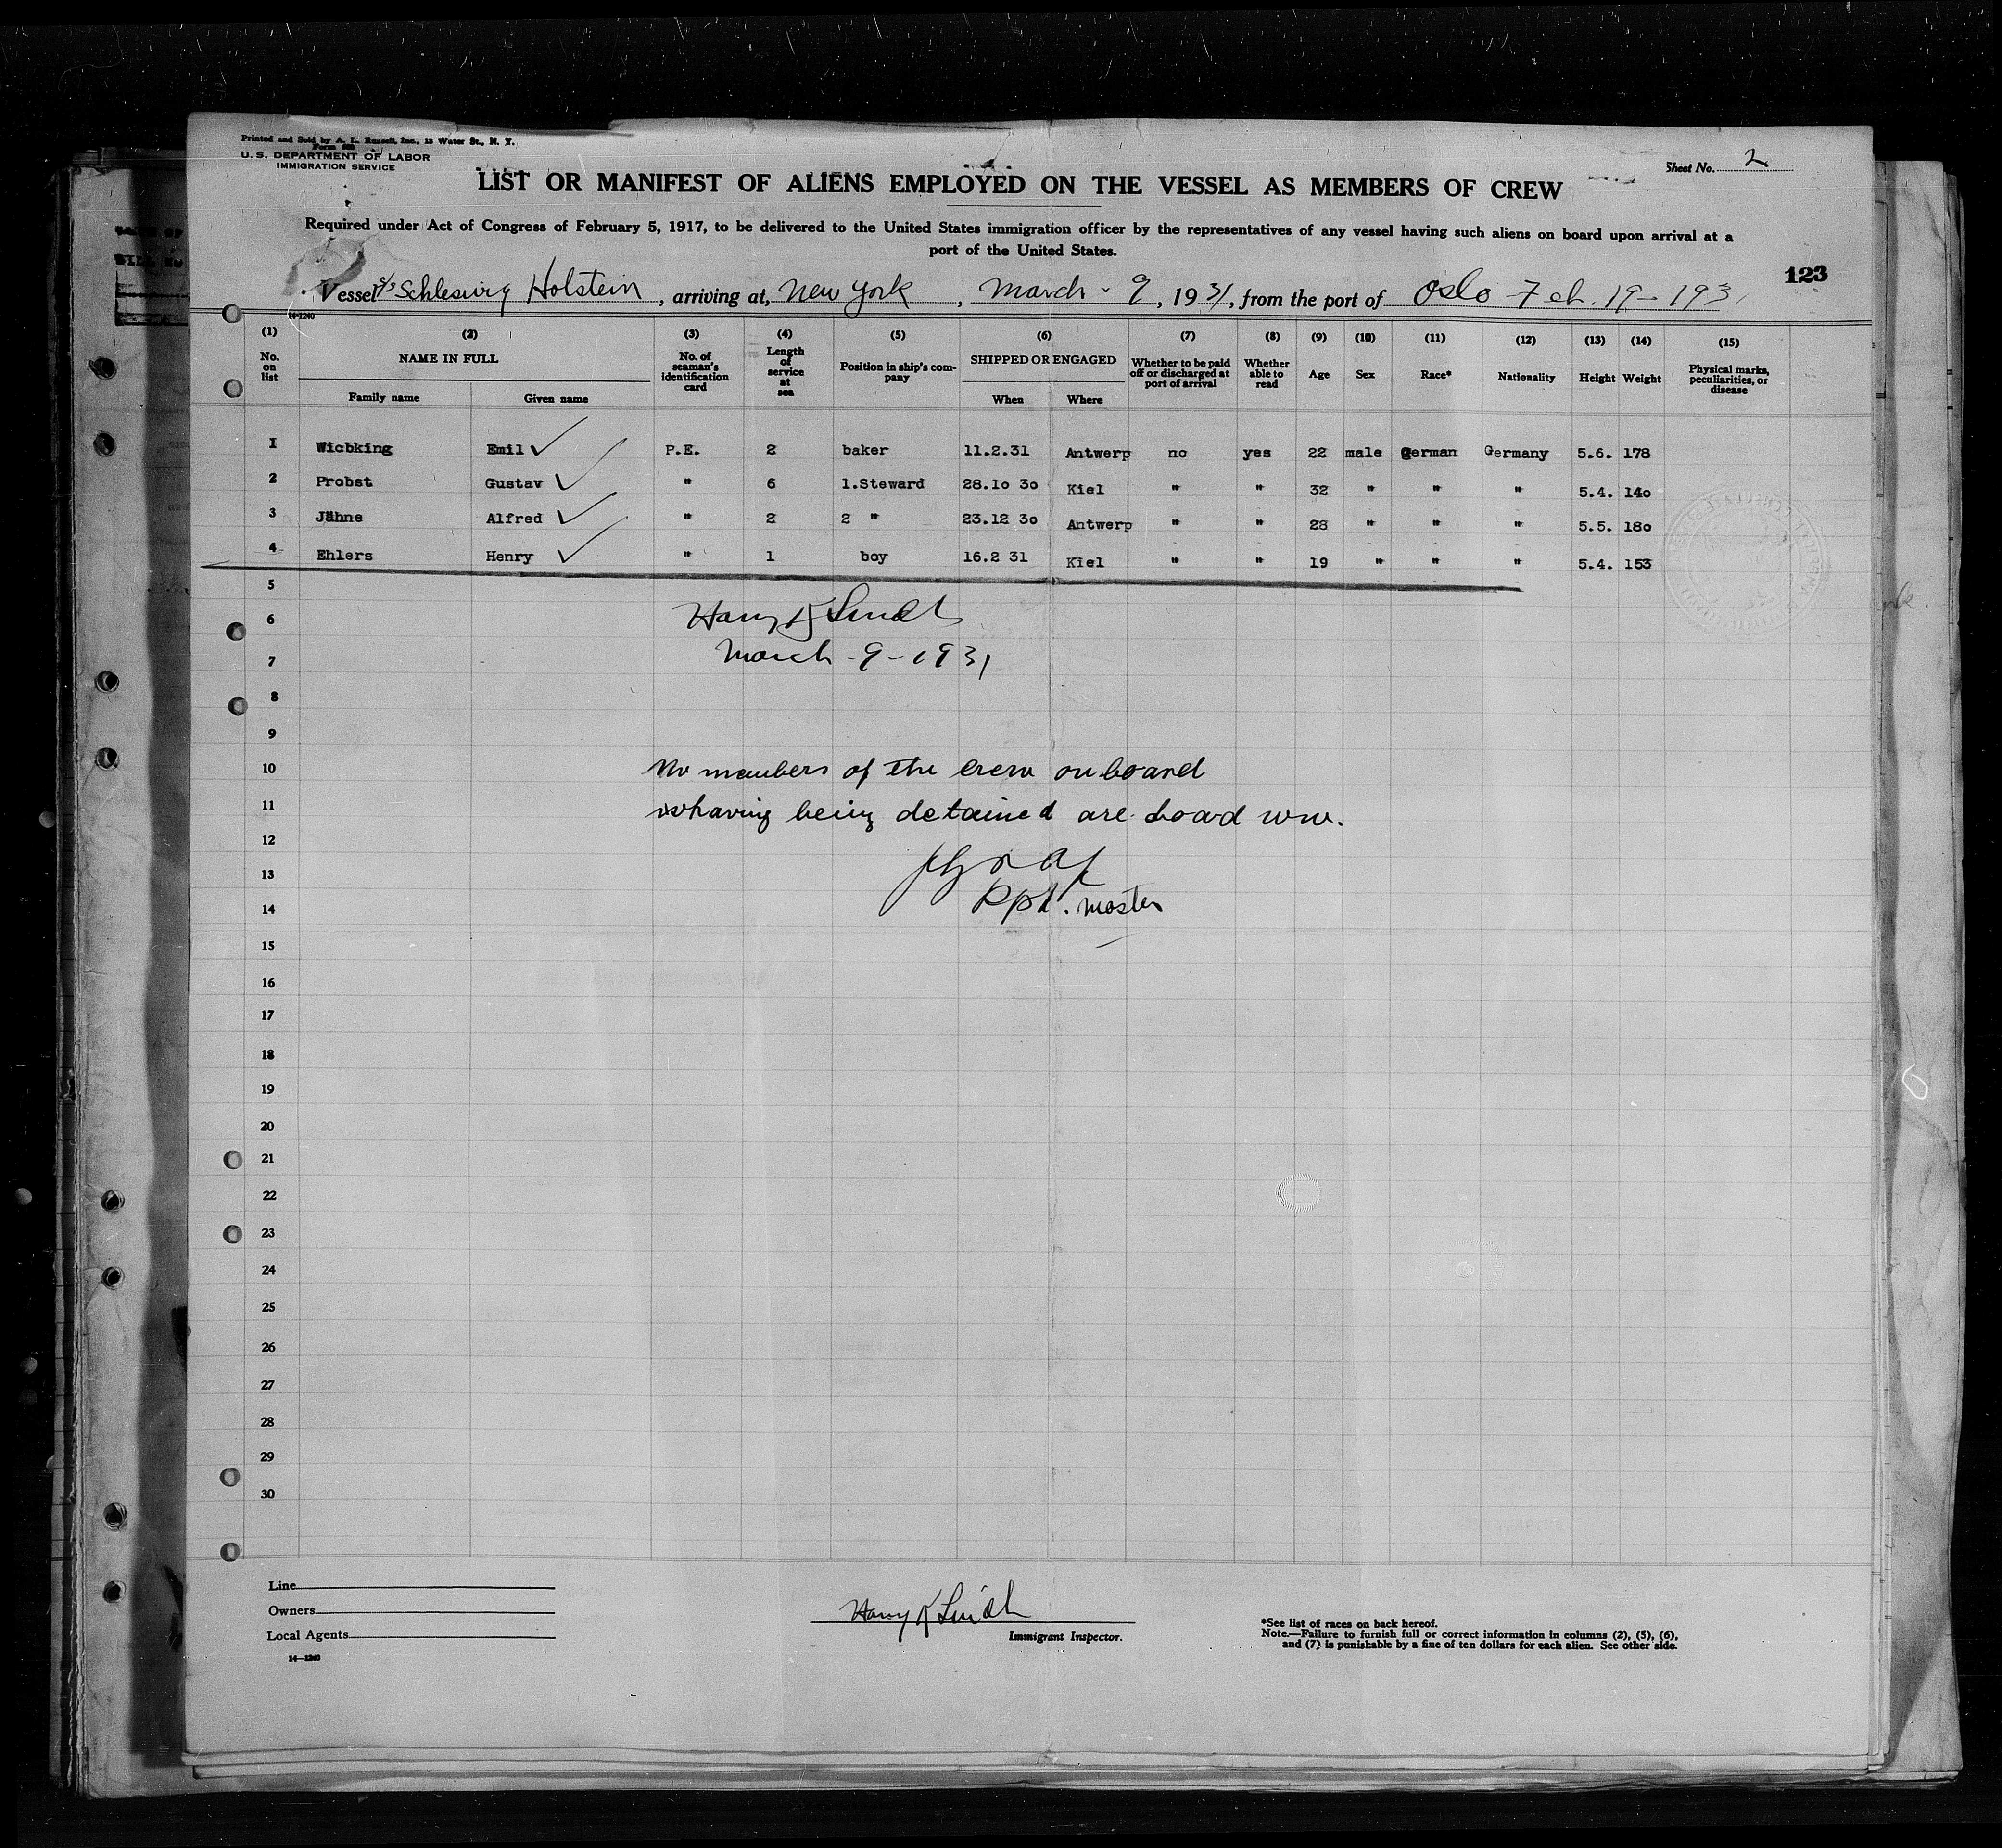 Printed and Sold by A. L. Russell, Inc., 13 Water St., N. Y.
U. S. DEPARTMENT OF LABOR
IMMIGRATION SERVICE
Sheet No. 2
LIST OR MANIFEST OF ALIENS EMPLOYED ON THE VESSEL AS MEMBERS OF CREW
Required under Act of Congress of February 5, 1917, to be delivered to the United States immigration officer by the representatives of any vessel having such aliens on board upon arrival at a
port of the United States.
123
Vessel S/S Schleswig Holstein, arriving at, New York, March - 9, 1931, from the port of Oslo Feb. 19 - 1931
14-1240
(1) (2) (3) (4) (5) (6) (7) (8) (9) (10) (11) (12) (13) (14) (15)
No. on list NAME IN FULL Family name Given name No. of seaman's identification card Length of service at sea Position in ship's company SHIPPED OR ENGAGED When Where Whether to be paid off or discharged at port of arrival Whether able to read Age Sex Race* Nationality Height Weight Physical marks, peculiarities, or disease
1 Wicbking Emil P.E. 2 baker 11.2.31 Antwerp no yes 22 male German Germany 5.6. 178
2 Probst Gustav " 6 1.Steward 28.10 30 Kiel " " 32 " " " 5.4. 140
3 Jähne Alfred " 2 2 " 23.12 30 Antwerp " " 28 " " " 5.5. 180
4 Ehlers Henry " 1 boy 16.2 31 Kiel " " 19 " " " 5.4. 153
5
6 Harry
7 March - 9 - 1931
8
9
10 No members of the crew on board
11 having being detained are board
12
13
14 Master
15
16
17
18
19
20
21
22
23
24
25
26
27
28
29
30
Line
Owners
Local Agents
14-1240
Harry
Immigrant Inspector.
*See list of races on back hereof.
Note.—Failure to furnish full or correct information in columns (2), (5), (6),
and (7) is punishable by a fine of ten dollars for each alien. See other side.